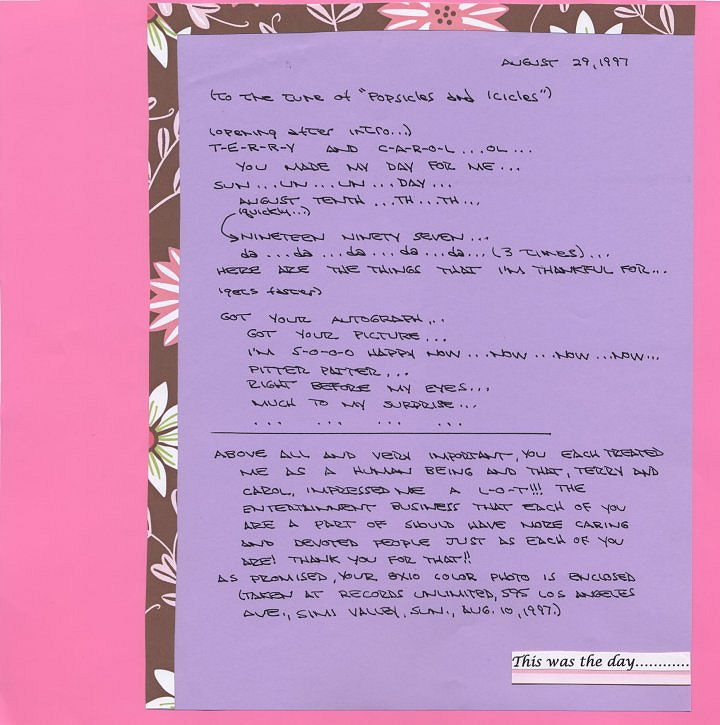 AUGUST 29, 1997
(to the tune of "Popsicles and Icicles")
(opening after intro...)
T-E-R-R-Y AND C-A-R-O-L...OL...
YOU MADE MY DAY FOR ME...
SUN...UN...UN...DAY...
AUGUST TENTH...TH...TH...
(quickly...)
NINETEEN NINETY SEVEN...
da...da...da...da...da...(3 TIMES)...
HERE ARE THE THINGS THAT I'M THANKFUL FOR...
(gets faster)
GOT YOUR AUTOGRAPH...
GOT YOUR PICTURE...
I'M S-O-O-O HAPPY NOW...NOW...NOW...NOW...
PITTER PATTER...
RIGHT BEFORE MY EYES...
MUCH TO MY SURPRISE...
... ... ... ...
ABOVE ALL AND VERY IMPORTANT, YOU EACH TREATED
ME AS A HUMAN BEING AND THAT, TERRY AND
CAROL, IMPRESSED ME A L-O-T!!! THE
ENTERTAINMENT BUSINESS THAT EACH OF YOU
ARE A PART OF SHOULD HAVE MORE CARING
AND DEVOTED PEOPLE JUST AS EACH OF YOU
ARE! THANK YOU FOR THAT!!
AS PROMISED, YOUR 8X10 COLOR PHOTO IS ENCLOSED
(TAKEN AT RECORDS UNLIMITED, 595 LOS ANGELES
AVE., SIMI VALLEY, SUN., AUG. 10, 1997.)
This was the day............